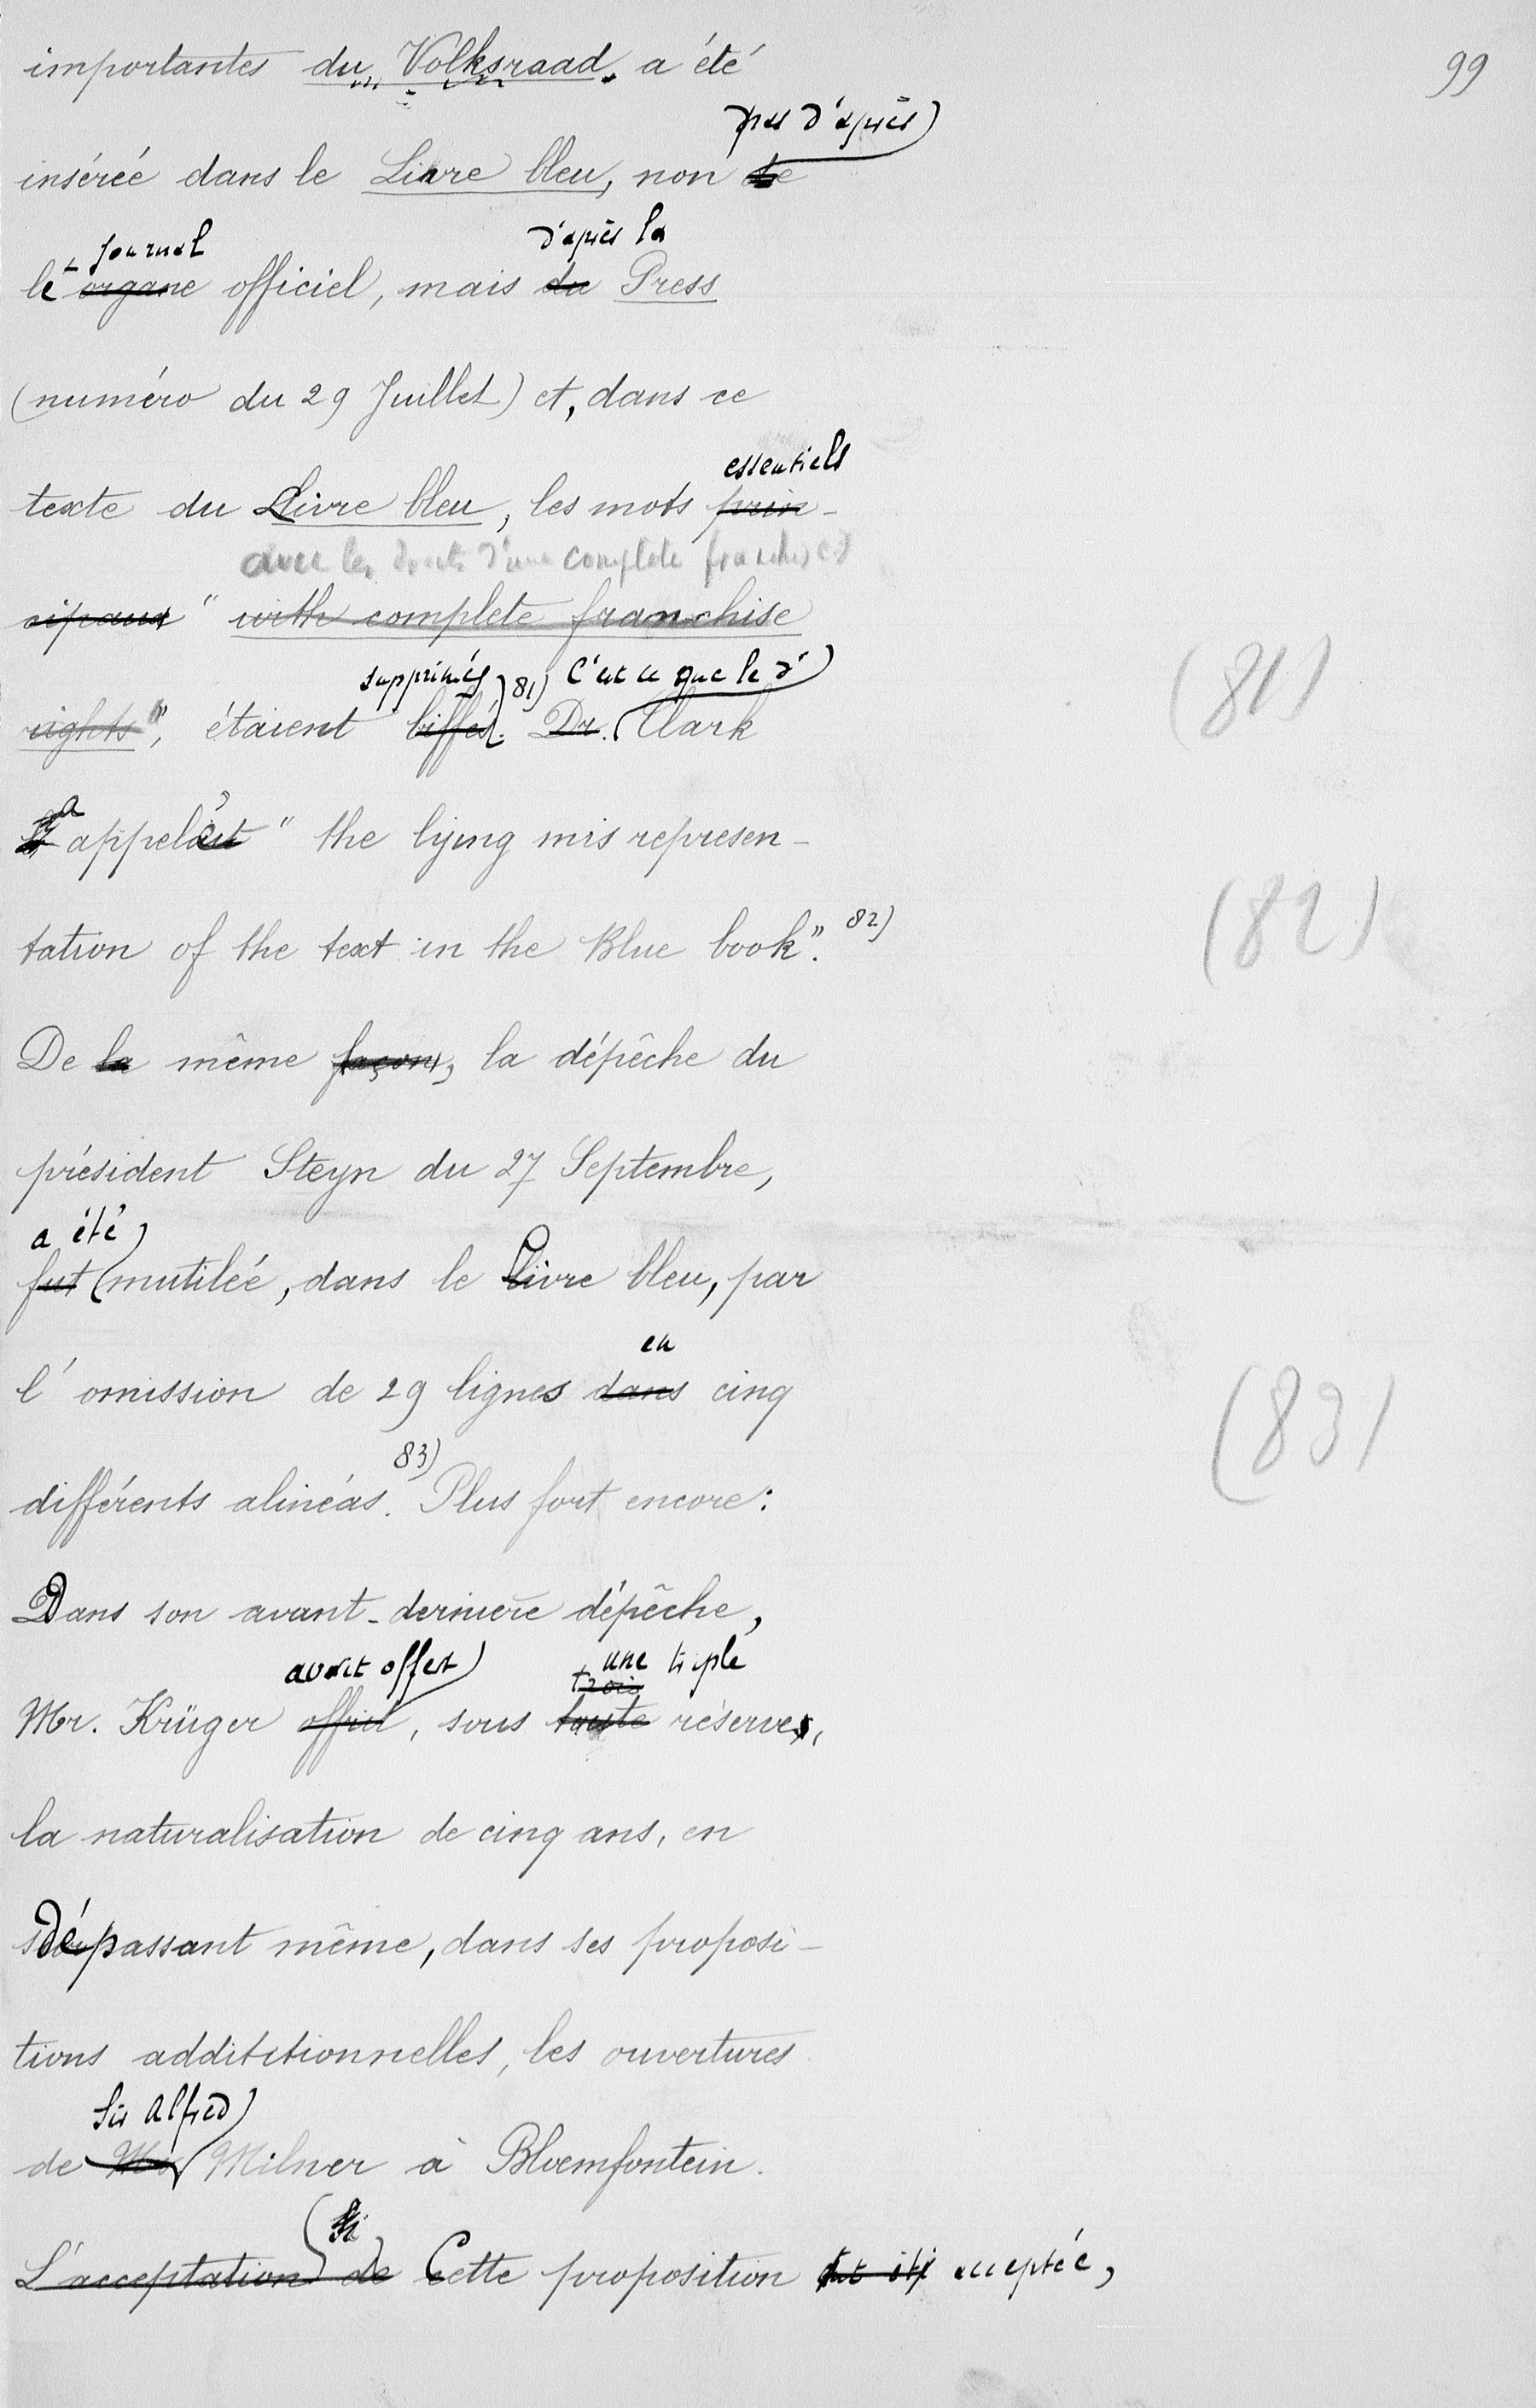 99
importantes du Volksraad, a été
pas d'après
insérée dans le Livre bleu, non de
journal d'après la
le organe officiel, mais du Press
(numéro du 29 Juillet) et, dans ce
essentiels
texte du Livre bleu, les mots prin-
avec les droits d'une complete franchise
cipaux " with complete franchise
supprimés 81) C'est ce que le d'
rights", étaient biffés. Dr. Clark (81)
a
appelé " the lying mis represen-
tation of the text in the Blue book". 82) (82)
De la même façon, la dépêche du
président Steyn du 27 Septembre,
a été
fut mutilée, dans le Livre bleu, par
en
l'omission de 29 lignes dans cinq
83) (83)
différents alinéas. Plus fort encore:
Dans son avant-dernière dépêche,
avait offert une triple
trois
Mr. Krüger offrit, sous toute réserve,
la naturalisation de cinq ans, en
dépassant même, dans ses proposi-
tions addititionnelles, les ouvertures
Sir Alfred
de Mr Milner à Bloemfontein.
L'acceptation de Cette proposition fut été acceptée,